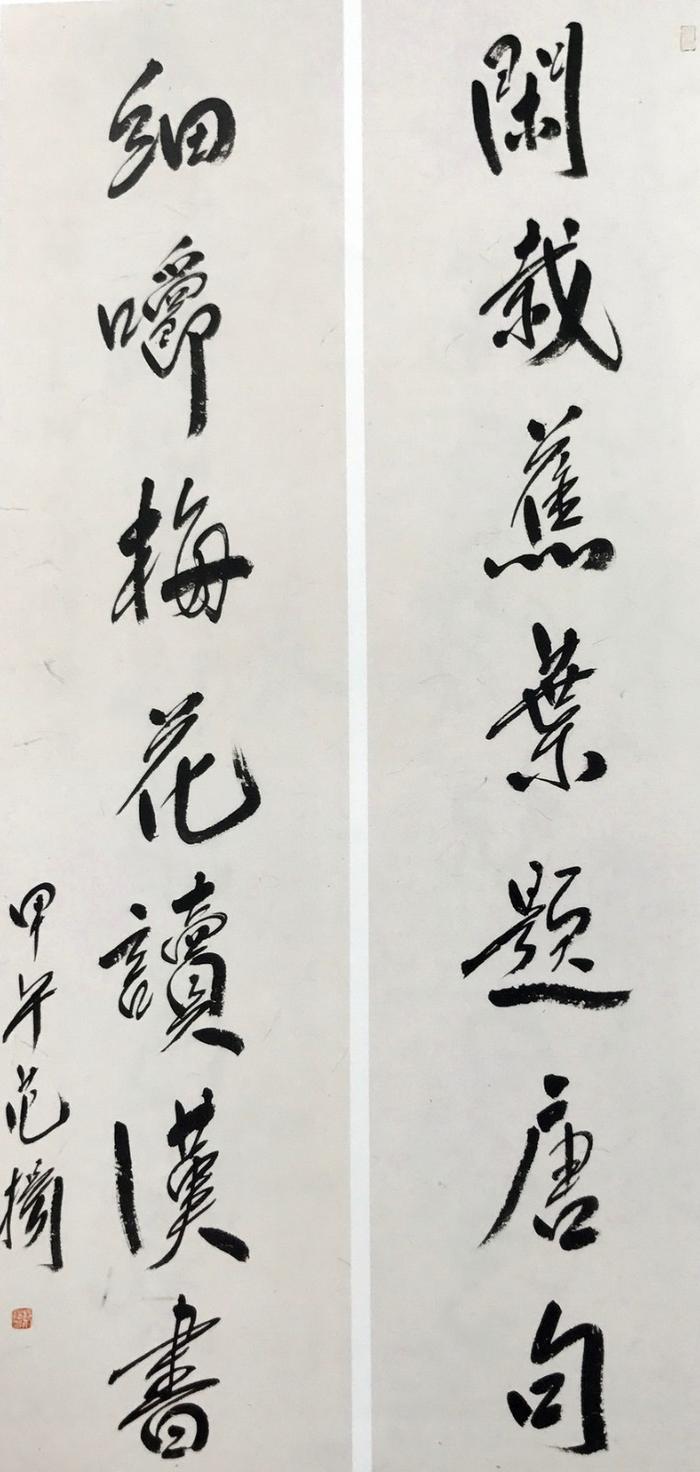 閑栽蕉葉題唐句
細嚼梅花讀漢書
甲午范